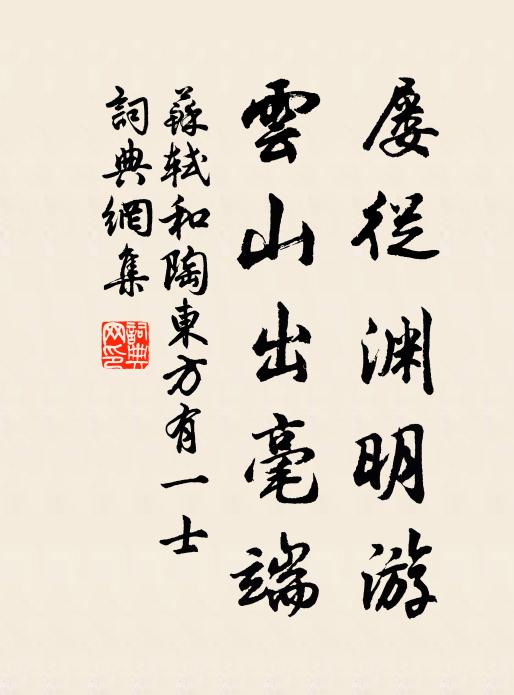 屡從渊明游
雲山出毫端
蘇軾和陶東方有一士
詞典網集
詞典网印